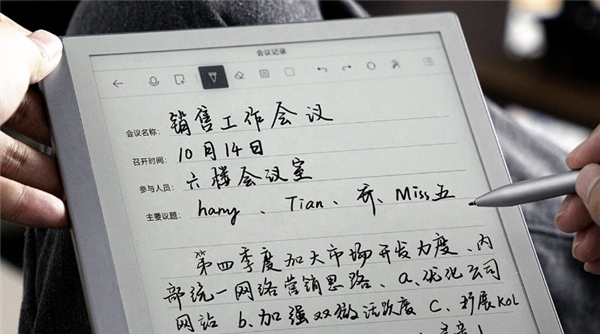 会议记录
会议名称: 销售工作会议
召开时间: 10月14日
参与人员: 六楼会议室
主要议题: harry、Tian、乔、Miss五
第四季度加大市场开发力度、内
部统一网络营销思路、a.优化公司
网站 b.加强双微活跃度 C.扩展KOL